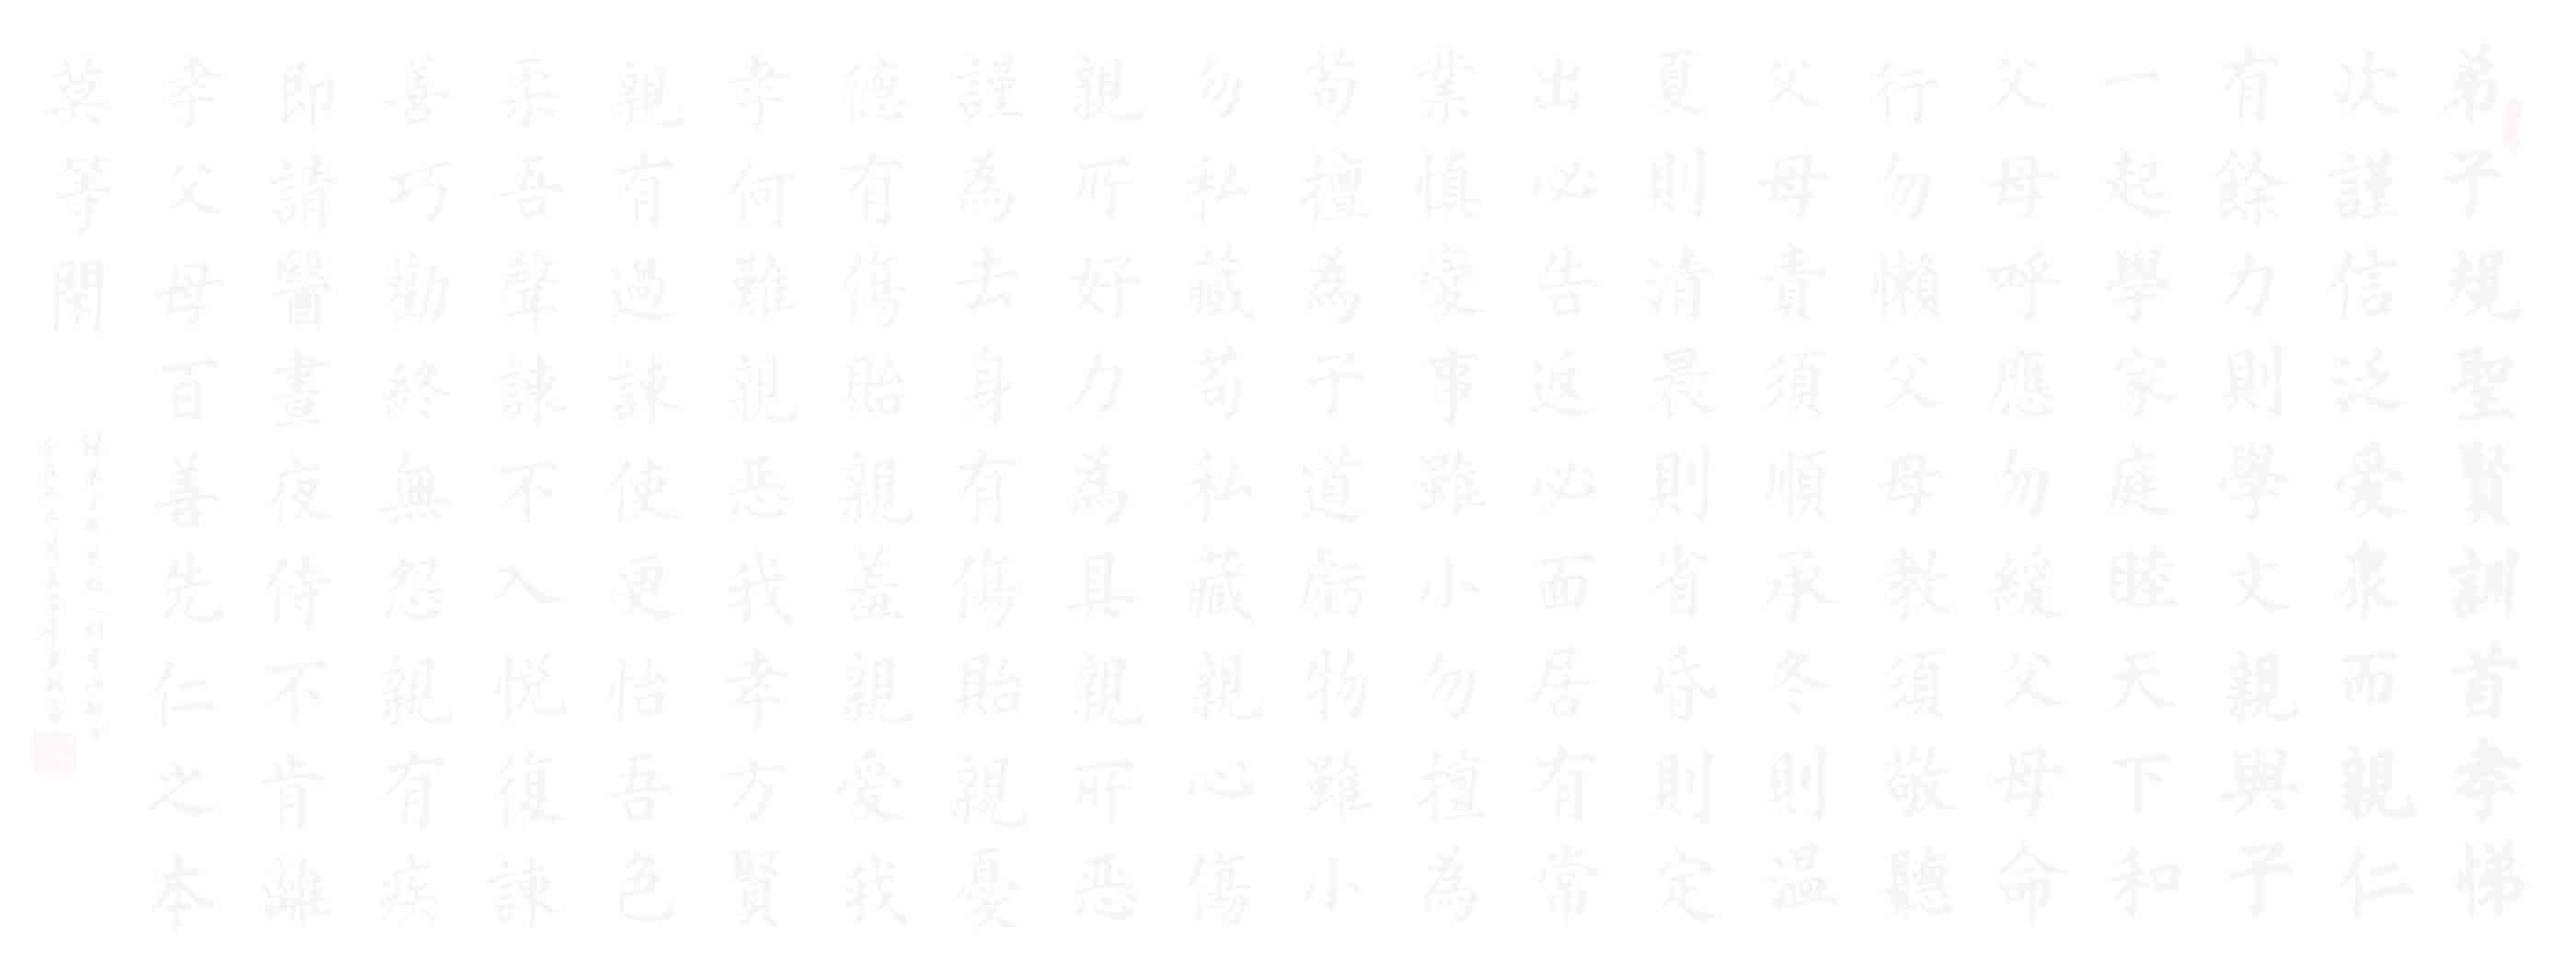 弟子規聖賢訓首孝悌
次謹信泛愛衆而親仁
有餘力則學文親與子
一起學家庭睦天下和
父母呼應勿緩父母命
行勿懶父母教須敬聽
父母責須順承冬則溫
夏則凊晨則省昏則定
出必告返必面居有常
業慎變事雖小勿擅為
苟擅為子道虧物雖小
勿私藏苟私藏親心傷
親所好力為具親所惡
謹為去身有傷貽親憂
德有傷貽親羞親愛我
孝何難親惡我孝方賢
親有過諫使更怡吾色
柔吾聲諫不入悅復諫
善巧勸終無怨親有疾
即請醫晝夜侍不肯離
孝父母百善先仁之本
莫等閑